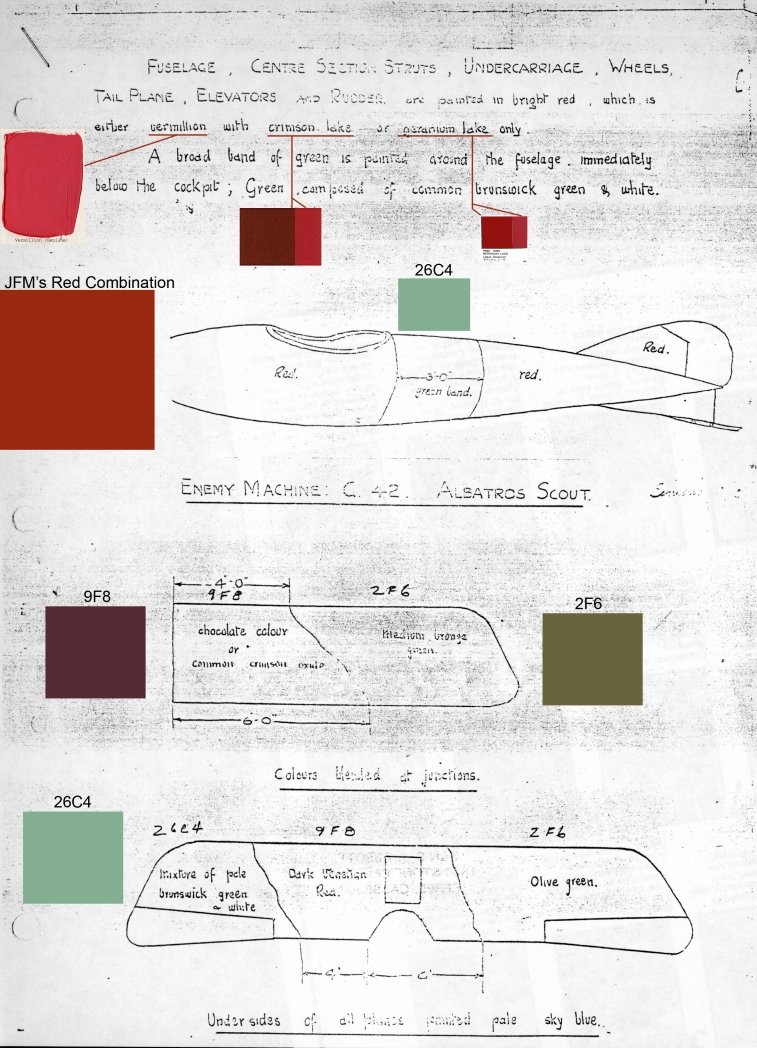 FUSELAGE, CENTRE SECTION STRUTS, UNDERCARRIAGE, WHEELS,
TAIL PLANE, ELEVATORS AND RUDDER. are painted in bright red, which is
either vermillion with crimson lake or geranium lake only.
A broad band of green is painted around the fuselage. immediately
below the cockpit; Green, composed of common brunswick green & white.
Vermillion (Genuine)
JFM's Red Combination
26C4
Red.
3'-0"
green band.
red.
Red.
ENEMY MACHINE: G. 42. ALBATROS SCOUT.
4'-0"
9F8
2F6
9F8
chocolate colour
or
common crimson oxide
medium bronze
green.
2F6
6'-0"
Colours blended at junctions.
26C4
26C4
9F8
2F6
mixture of pale
brunswick green
& white
Dark Venetian
Red.
Olive green.
4'
6'
Undersides of all planes painted pale sky blue.